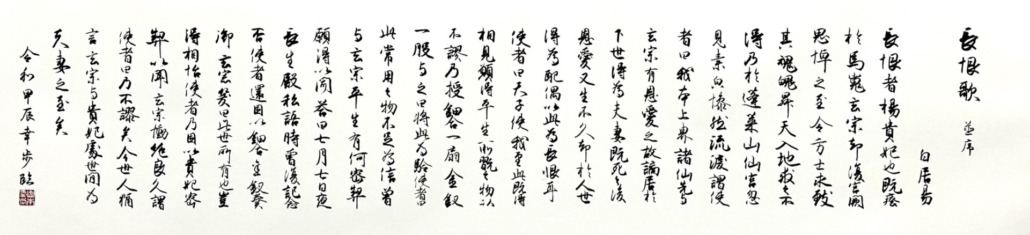 長恨歌 並序
白居易
長恨者楊貴妃也既葬
於馬嵬玄宗却復宮闕
思悼之至令方士求致
其魂魄昇天入地求之不
得乃於蓬萊山仙宮忽
見素皃惨然流淚謂使
者曰我本上界諸仙先与
玄宗有恩愛之故謫居於
下世得為夫妻既死之後
恩愛又生不久却於人世
得為配偶以此為長恨耳
使者曰天子使我至此既得
相見願得平生所翫之物以
不謬乃授鈿合一扇金釵
一股与之曰将此為驗使者曰
此常用之物不足為信曾
与玄宗平生有何密契
願得以聞答曰七月七日夜
長生殿私語時曾復記
否使者還因以鈿合金釵奏
御玄宗笑曰此世所有也豈
得相怡使者乃因以貴妃密
契以聞玄宗慟絶良久謂
使者曰乃不謬矣今世人猶
言玄宗与貴妃處世間為
夫妻之至矣
令和甲辰幸歩臨